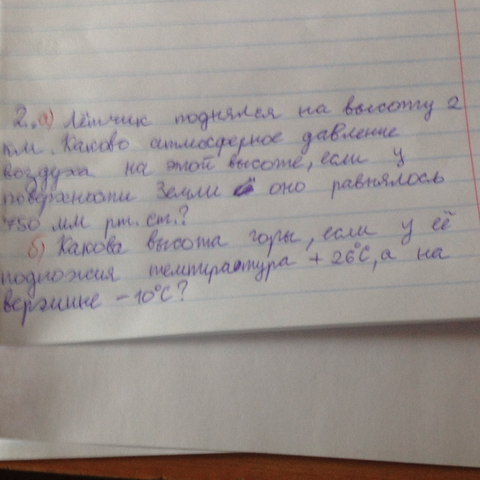 2. а) Лётчик поднялся на высоту 2
км. Каково атмосферное давление
воздуха на этой высоте, если у
поверхности Земли оно равнялось
750 мм рт. ст.?
б) Какова высота горы, если у её
подножия температура + 26°С, а на
вершине - 10°С?